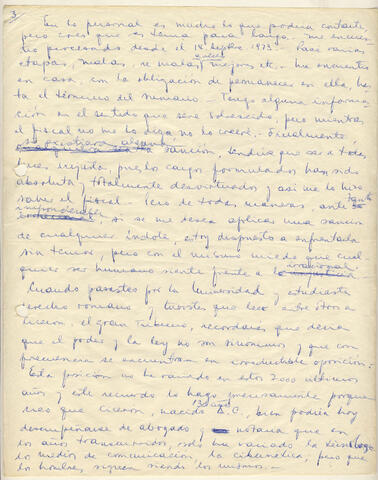 3
En lo personal es mucho lo que podría contarte,
pero creo que es tema para largo. Me encuen-
tro procesado desde el 18 Septbre 1973. Pasé varias
etapas, malas, no malas, mejores, etc. Me encuentro
en casa, con la obligación de permanecer en ella, has-
ta el término del sumario. Tengo alguna informa-
ción en el sentido que seré sobreseído, pero mientras
el fiscal no me lo diga no lo creeré. Finalmente,
si existiera alguna sanción, tendría que ser a todas
luces injusta, pues los cargos formulados han sido
absoluta y totalmente desvirtuados y así me lo hizo
saber el fiscal. Pero de todas maneras, ante tanto
imponderable, si se me desea aplicar una sanción
de cualquier índole, estoy dispuesto a enfrentarla
sin temor, pero con el mismo miedo que cual-
quier ser humano siente frente a lo irracional.
Cuando pasastes por la Universidad y estudiaste
derecho romano y tuvistes que leer entre otros a
Ciceron, el gran Tribuno, recordarás que decía
que el poder y la ley no son sinónimos y que con
frecuencia se encuentran en irreductible oposición.
Esta posición no ha variado en estos 2000 últimos
años y este recuerdo lo hago precisamente porque
creo que Ciceron, nacido A.C., bien podría hoy
desempeñarse de abogado y notaría que en
los años transcurridos, solo ha variado la tecnología
los medios de comunicación, la cibernética, pero que
los hombres, siguen siendo los mismos.-